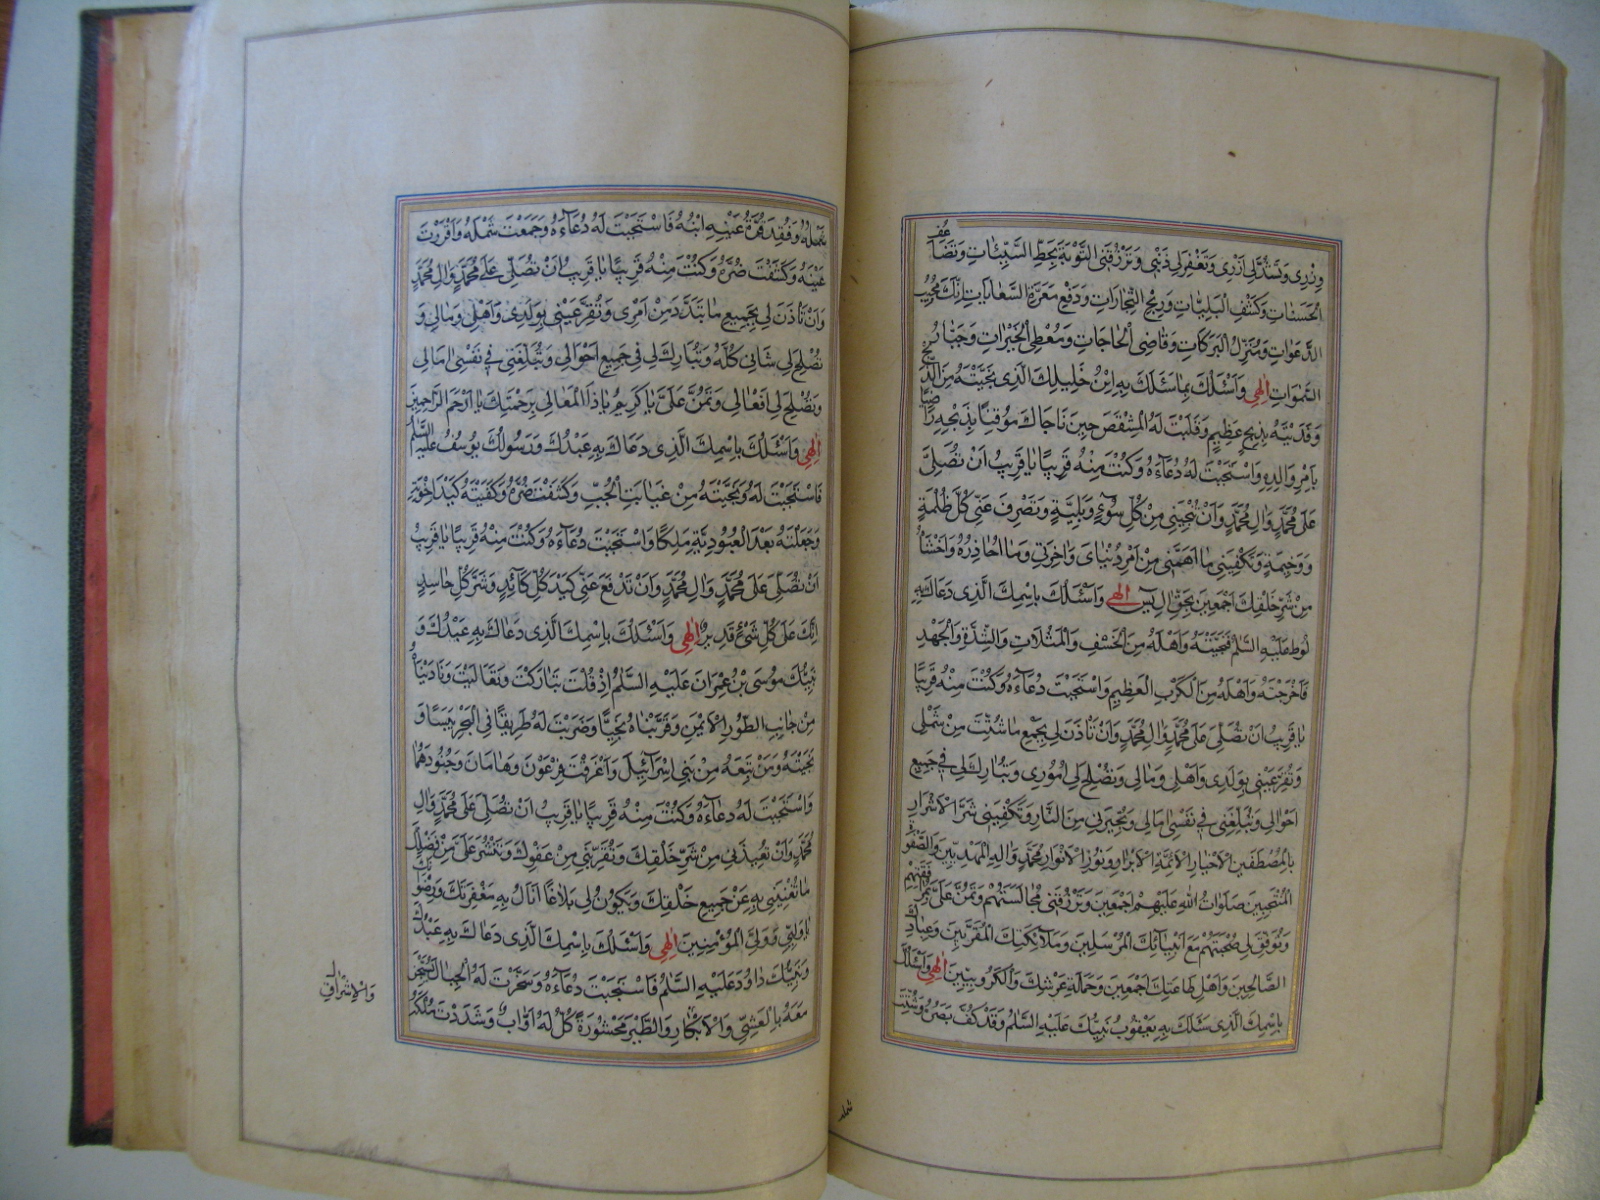 وِزْرِي وَتَشُدَّ لِي اَزْرِي وَتَغْفِرَ لِي ذَنْبِي وَتَرْزُقَنِي التَّوْبَةَ بِحَطِّ السَّيِّئَاتِ وَتَضَاعُفِ
الْحَسَنَاتِ وَكَشْفِ الْبَلِيَّاتِ وَرِبْحِ التِّجَارَاتِ وَدَفْعِ مَعَرَّةِ السَّعَايَاتِ اِنَّكَ مُجِيبُ
الدَّعَوَاتِ وَمُنْزِلُ الْبَرَكَاتِ وَقَاضِي الْحَاجَاتِ وَمُعْطِي الْخَيْرَاتِ وَجَبَّارُ
السَّمٰوَاتِ اِلٰهِي وَاَسْئَلُكَ بِمَا سَئَلَكَ بِهِ ابْنُ خَلِيلِكَ الَّذِي نَجَّيْتَهُ مِنَ الذَّبْحِ
وَفَدَيْتَهُ بِذِبْحٍ عَظِيمٍ وَقَلَبْتَ لَهُ الْمِشْقَصَ حِينَ نَاجَاكَ مُوقِنًا بِذَبْحِهِ رَاضِيًا
بِاَمْرِ وَالِدِهِ وَاسْتَجَبْتَ لَهُ دُعَاءَهُ وَكُنْتَ مِنْهُ قَرِيبًا يَا قَرِيبُ اَنْ تُصَلِّيَ
عَلَى مُحَمَّدٍ وَاٰلِ مُحَمَّدٍ وَاَنْ تُنْجِيَنِي مِنْ كُلِّ سُوءٍ وَبَلِيَّةٍ وَتَصْرِفَ عَنِّي كُلَّ ظُلْمَةٍ
وَوَخِيمَةٍ وَتَكْفِيَنِي مَا اَهَمَّنِي مِنْ اَمْرِ دُنْيَايَ وَاٰخِرَتِي وَمَا اُحَاذِرُهُ وَاَخْشَاهُ
مِنْ شَرِّ خَلْقِكَ اَجْمَعِينَ بِحَقِّ اٰلِ يٰسٓ اِلٰهِي وَاَسْئَلُكَ بِاسْمِكَ الَّذِي دَعَاكَ بِهِ
لُوطٌ عَلَيْهِ السَّلَامُ فَنَجَّيْتَهُ وَاَهْلَهُ مِنَ الْخَسْفِ وَالْمَثُلَاتِ وَالشِّدَّةِ وَالْجَهْدِ
فَاَخْرَجْتَهُ وَاَهْلَهُ مِنَ الْكَرْبِ الْعَظِيمِ وَاسْتَجَبْتَ دُعَاءَهُ وَكُنْتَ مِنْهُ قَرِيبًا
يَا قَرِيبُ اَنْ تُصَلِّيَ عَلَى مُحَمَّدٍ وَاٰلِ مُحَمَّدٍ وَاَنْ تَأْذَنَ لِي بِجَمْعِ مَا شُتِّتَ مِنْ شَمْلِي
وَتُقِرَّ عَيْنِي بِوَلَدِي وَاَهْلِي وَمَالِي وَتُصْلِحَ لِي اُمُورِي وَتُبَارِكَ لِي فِي جَمِيعِ
اَحْوَالِي وَتُبَلِّغَنِي فِي نَفْسِي اٰمَالِي وَتُجِيرَنِي مِنَ النَّارِ وَتَكْفِيَنِي شَرَّ الْاَشْرَارِ
بِالْمُصْطَفَيْنَ الْاَخْيَارِ الْاَئِمَّةِ الْاَبْرَارِ وَنُورِ الْاَنْوَارِ مُحَمَّدٍ وَاٰلِهِ الْمَهْدِيِّينَ وَالصَّفْوَةِ
الْمُنْتَجَبِينَ صَلَوَاتُ اللّٰهِ عَلَيْهِمْ اَجْمَعِينَ وَتَرْزُقَنِي مُجَالَسَتَهُمْ وَتَمُنَّ عَلَيَّ بِمُرَافَقَتِهِمْ
وَتُوَفِّقَ لِي صُحْبَتَهُمْ مَعَ اَنْبِيَائِكَ الْمُرْسَلِينَ وَمَلَائِكَتِكَ الْمُقَرَّبِينَ وَعِبَادِكَ
الصَّالِحِينَ وَاَهْلِ طَاعَتِكَ اَجْمَعِينَ وَحَمَلَةِ عَرْشِكَ وَالْكَرُوبِيِّينَ اِلٰهِي وَاَسْئَلُكَ
بِاسْمِكَ الَّذِي سَئَلَكَ بِهِ يَعْقُوبُ نَبِيُّكَ عَلَيْهِ السَّلَامُ وَقَدْ كُفَّ بَصَرُهُ وَشُتِّتَ
شمله
شَمْلُهُ وَفُقِدَ قُرَّةُ عَيْنِهِ ابْنُهُ فَاسْتَجَبْتَ لَهُ دُعَاءَهُ وَجَمَعْتَ شَمْلَهُ وَاَقْرَرْتَ
عَيْنَهُ وَكَشَفْتَ ضُرَّهُ وَكُنْتَ مِنْهُ قَرِيبًا يَا قَرِيبُ اَنْ تُصَلِّيَ عَلَى مُحَمَّدٍ وَاٰلِ مُحَمَّدٍ
وَاَنْ تَأْذَنَ لِي بِجَمِيعِ مَا تَبَدَّدَ مِنْ اَمْرِي وَتُقِرَّ عَيْنِي بِوَلَدِي وَاَهْلِي وَمَالِي وَ
تُصْلِحَ لِي شَأْنِي كُلَّهُ وَتُبَارِكَ لِي فِي جَمِيعِ اَحْوَالِي وَتُبَلِّغَنِي فِي نَفْسِي اٰمَالِي
وَتُصْلِحَ لِي اَفْعَالِي وَتَمُنَّ عَلَيَّ يَا كَرِيمُ يَا ذَا الْمَعَالِي بِرَحْمَتِكَ يَا اَرْحَمَ الرَّاحِمِينَ
اِلٰهِي وَاَسْئَلُكَ بِاسْمِكَ الَّذِي دَعَاكَ بِهِ عَبْدُكَ وَرَسُولُكَ يُوسُفُ عَلَيْهِ السَّلَامُ
فَاسْتَجَبْتَ لَهُ وَنَجَّيْتَهُ مِنْ غَيَابَتِ الْجُبِّ وَكَشَفْتَ ضُرَّهُ وَكَفَيْتَهُ كَيْدَ اِخْوَتِهِ
وَجَعَلْتَهُ بَعْدَ الْعُبُودِيَّةِ مَلِكًا وَاسْتَجَبْتَ دُعَاءَهُ وَكُنْتَ مِنْهُ قَرِيبًا يَا قَرِيبُ
اَنْ تُصَلِّيَ عَلَى مُحَمَّدٍ وَاٰلِ مُحَمَّدٍ وَاَنْ تَدْفَعَ عَنِّي كَيْدَ كُلِّ كَائِدٍ وَشَرَّ كُلِّ حَاسِدٍ
اِنَّكَ عَلَى كُلِّ شَيْءٍ قَدِيرٌ اِلٰهِي وَاَسْئَلُكَ بِاسْمِكَ الَّذِي دَعَاكَ بِهِ عَبْدُكَ وَ
نَبِيُّكَ مُوسَى بْنُ عِمْرَانَ عَلَيْهِ السَّلَامُ اِذْ قُلْتَ تَبَارَكْتَ وَتَعَالَيْتَ وَنَادَيْنَاهُ
مِنْ جَانِبِ الطُّورِ الْاَيْمَنِ وَقَرَّبْنَاهُ نَجِيًّا وَضَرَبْتَ لَهُ طَرِيقًا فِي الْبَحْرِ يَبَسًا وَ
نَجَّيْتَهُ وَمَنْ تَبِعَهُ مِنْ بَنِي اِسْرَائِيلَ وَاَغْرَقْتَ فِرْعَوْنَ وَهَامَانَ وَجُنُودَهُمَا
وَاسْتَجَبْتَ لَهُ دُعَاءَهُ وَكُنْتَ مِنْهُ قَرِيبًا يَا قَرِيبُ اَنْ تُصَلِّيَ عَلَى مُحَمَّدٍ وَاٰلِ
مُحَمَّدٍ وَاَنْ تُعِيذَنِي مِنْ شَرِّ خَلْقِكَ وَتُقَرِّبَنِي مِنْ عَفْوِكَ وَتَنْشُرَ عَلَيَّ مِنْ فَضْلِكَ
مَا تُغْنِينِي بِهِ عَنْ جَمِيعِ خَلْقِكَ وَيَكُونُ لِي بَلَاغًا اَنَالُ بِهِ مَغْفِرَتَكَ وَرِضْوَانَكَ
يَا وَلِيِّي وَوَلِيَّ الْمُؤْمِنِينَ اِلٰهِي وَاَسْئَلُكَ بِاسْمِكَ الَّذِي دَعَاكَ بِهِ عَبْدُكَ
وَنَبِيُّكَ دَاوُدُ عَلَيْهِ السَّلَامُ فَاسْتَجَبْتَ دُعَاءَهُ وَسَخَّرْتَ لَهُ الْجِبَالَ يُسَبِّحْنَ
مَعَهُ بِالْعَشِيِّ وَالْاِبْكَارِ وَالطَّيْرَ مَحْشُورَةً كُلٌّ لَهُ اَوَّابٌ وَشَدَدْتَ مُلْكَهُ
وَالْاِشْرَاقِ